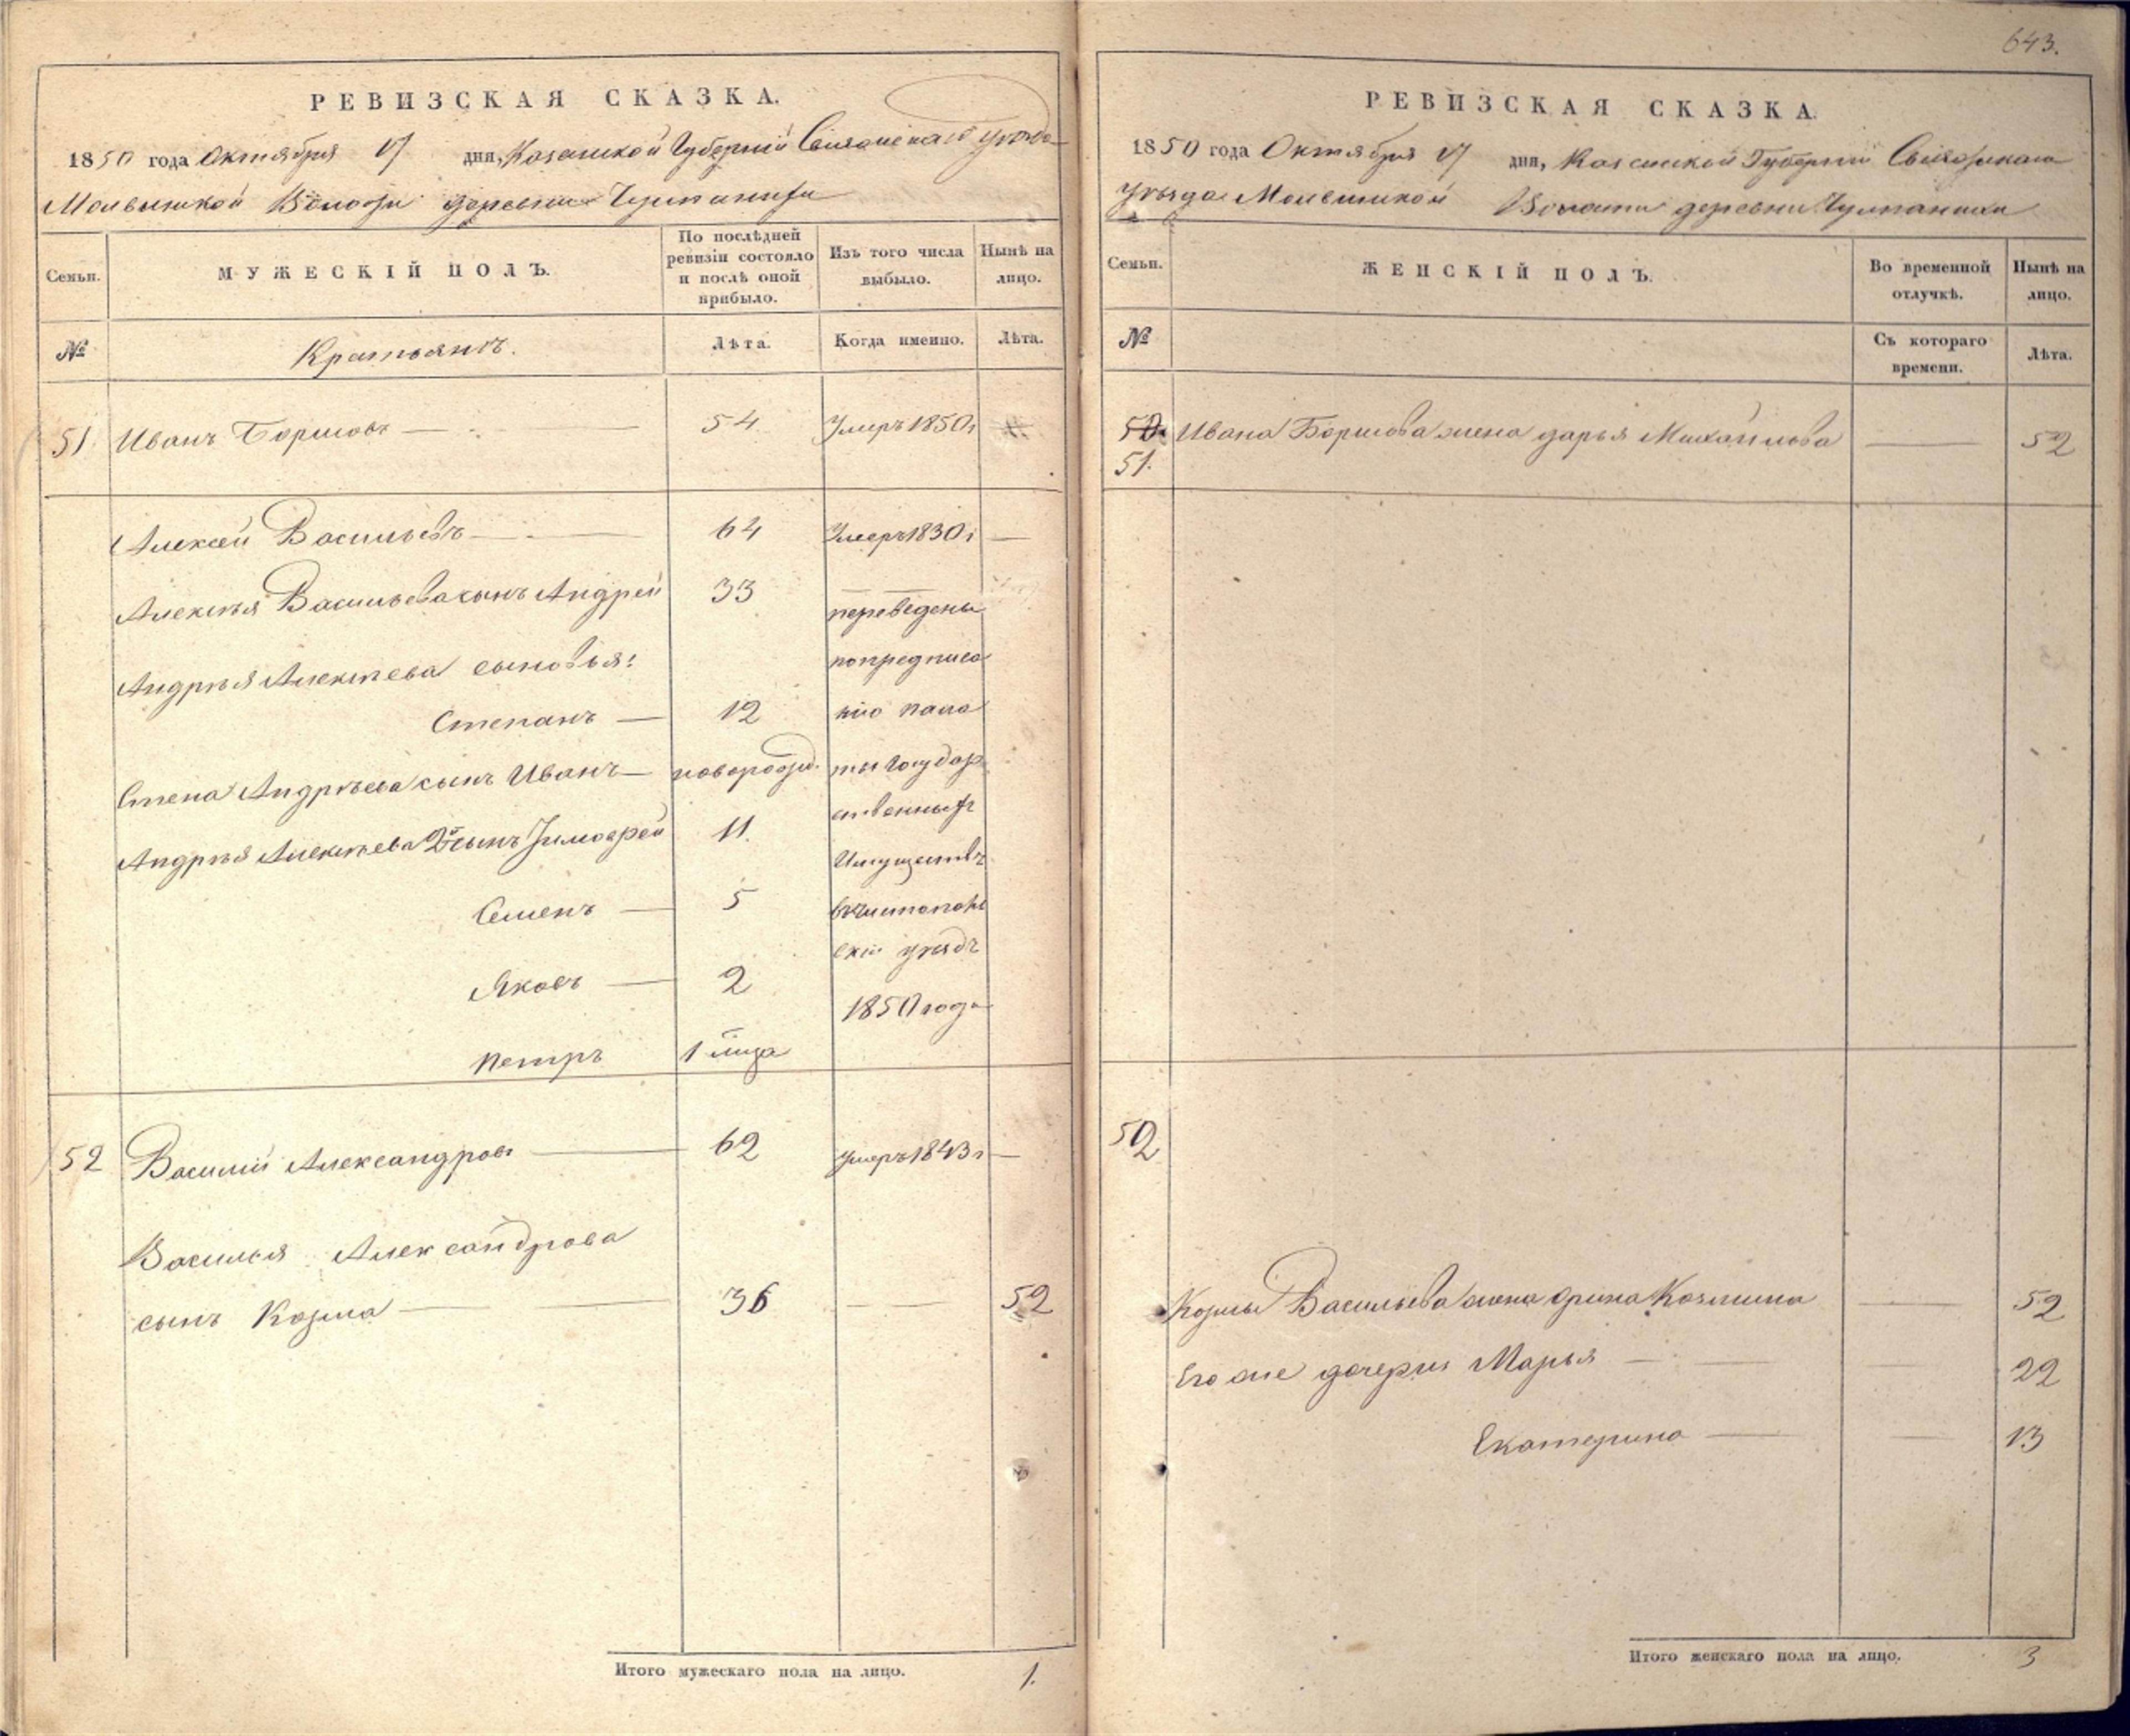 РЕВИЗСКАЯ СКАЗКА.
1850 года Октября 17 дня, Казанской Губерніи Свіяжскаго уезда
Молвинской Волости деревни
Семьи.
МУЖЕСКІЙ ПОЛЪ.
По послѣдней ревизіи состояло и послѣ оной прибыло.
Изъ того числа выбыло.
Нынѣ на лицо.
№
Крестьянъ.
Лѣта.
Когда именно.
Лѣта.
51 Иванъ 54 Умеръ 1850 г
Алексей Васильевъ 64 Умеръ 1830 г
Алексѣя Васильева сынъ Андрей 33
переведены
Андрѣя Алексѣева сыновья:
по предписа
Степанъ 12 нію пала
Степа Андрѣева сынъ Иванъ новорожд. ты Государ
ственныхъ
Андрѣя Алексѣева 2й сынъ Тимофей 11.
Имуществъ
Семенъ 5
скій уѣздъ
Яковъ 2
1850 года
Петръ 1
52 Василій Александровъ 62 умеръ 1843 г
Василья Александрова
сынъ Козма 36 52
Итого мужескаго пола на лицо. 1.
643.
РЕВИЗСКАЯ СКАЗКА.
1850 года Октября 17 дня, Казанской Губерніи Свіяжскаго
Уѣзда Молвинской Волости деревни
Семьи.
ЖЕНСКІЙ ПОЛЪ.
Во временной отлучкѣ.
Нынѣ на лицо.
№
Съ котораго времени.
Лѣта.
50. Ивана жена Дарья Михайлова 52
51.
52
Козмы Васильева жена Орина Козмина 52
Его же дочери Марья 22
Екатерина 13
Итого женскаго пола на лицо. 3